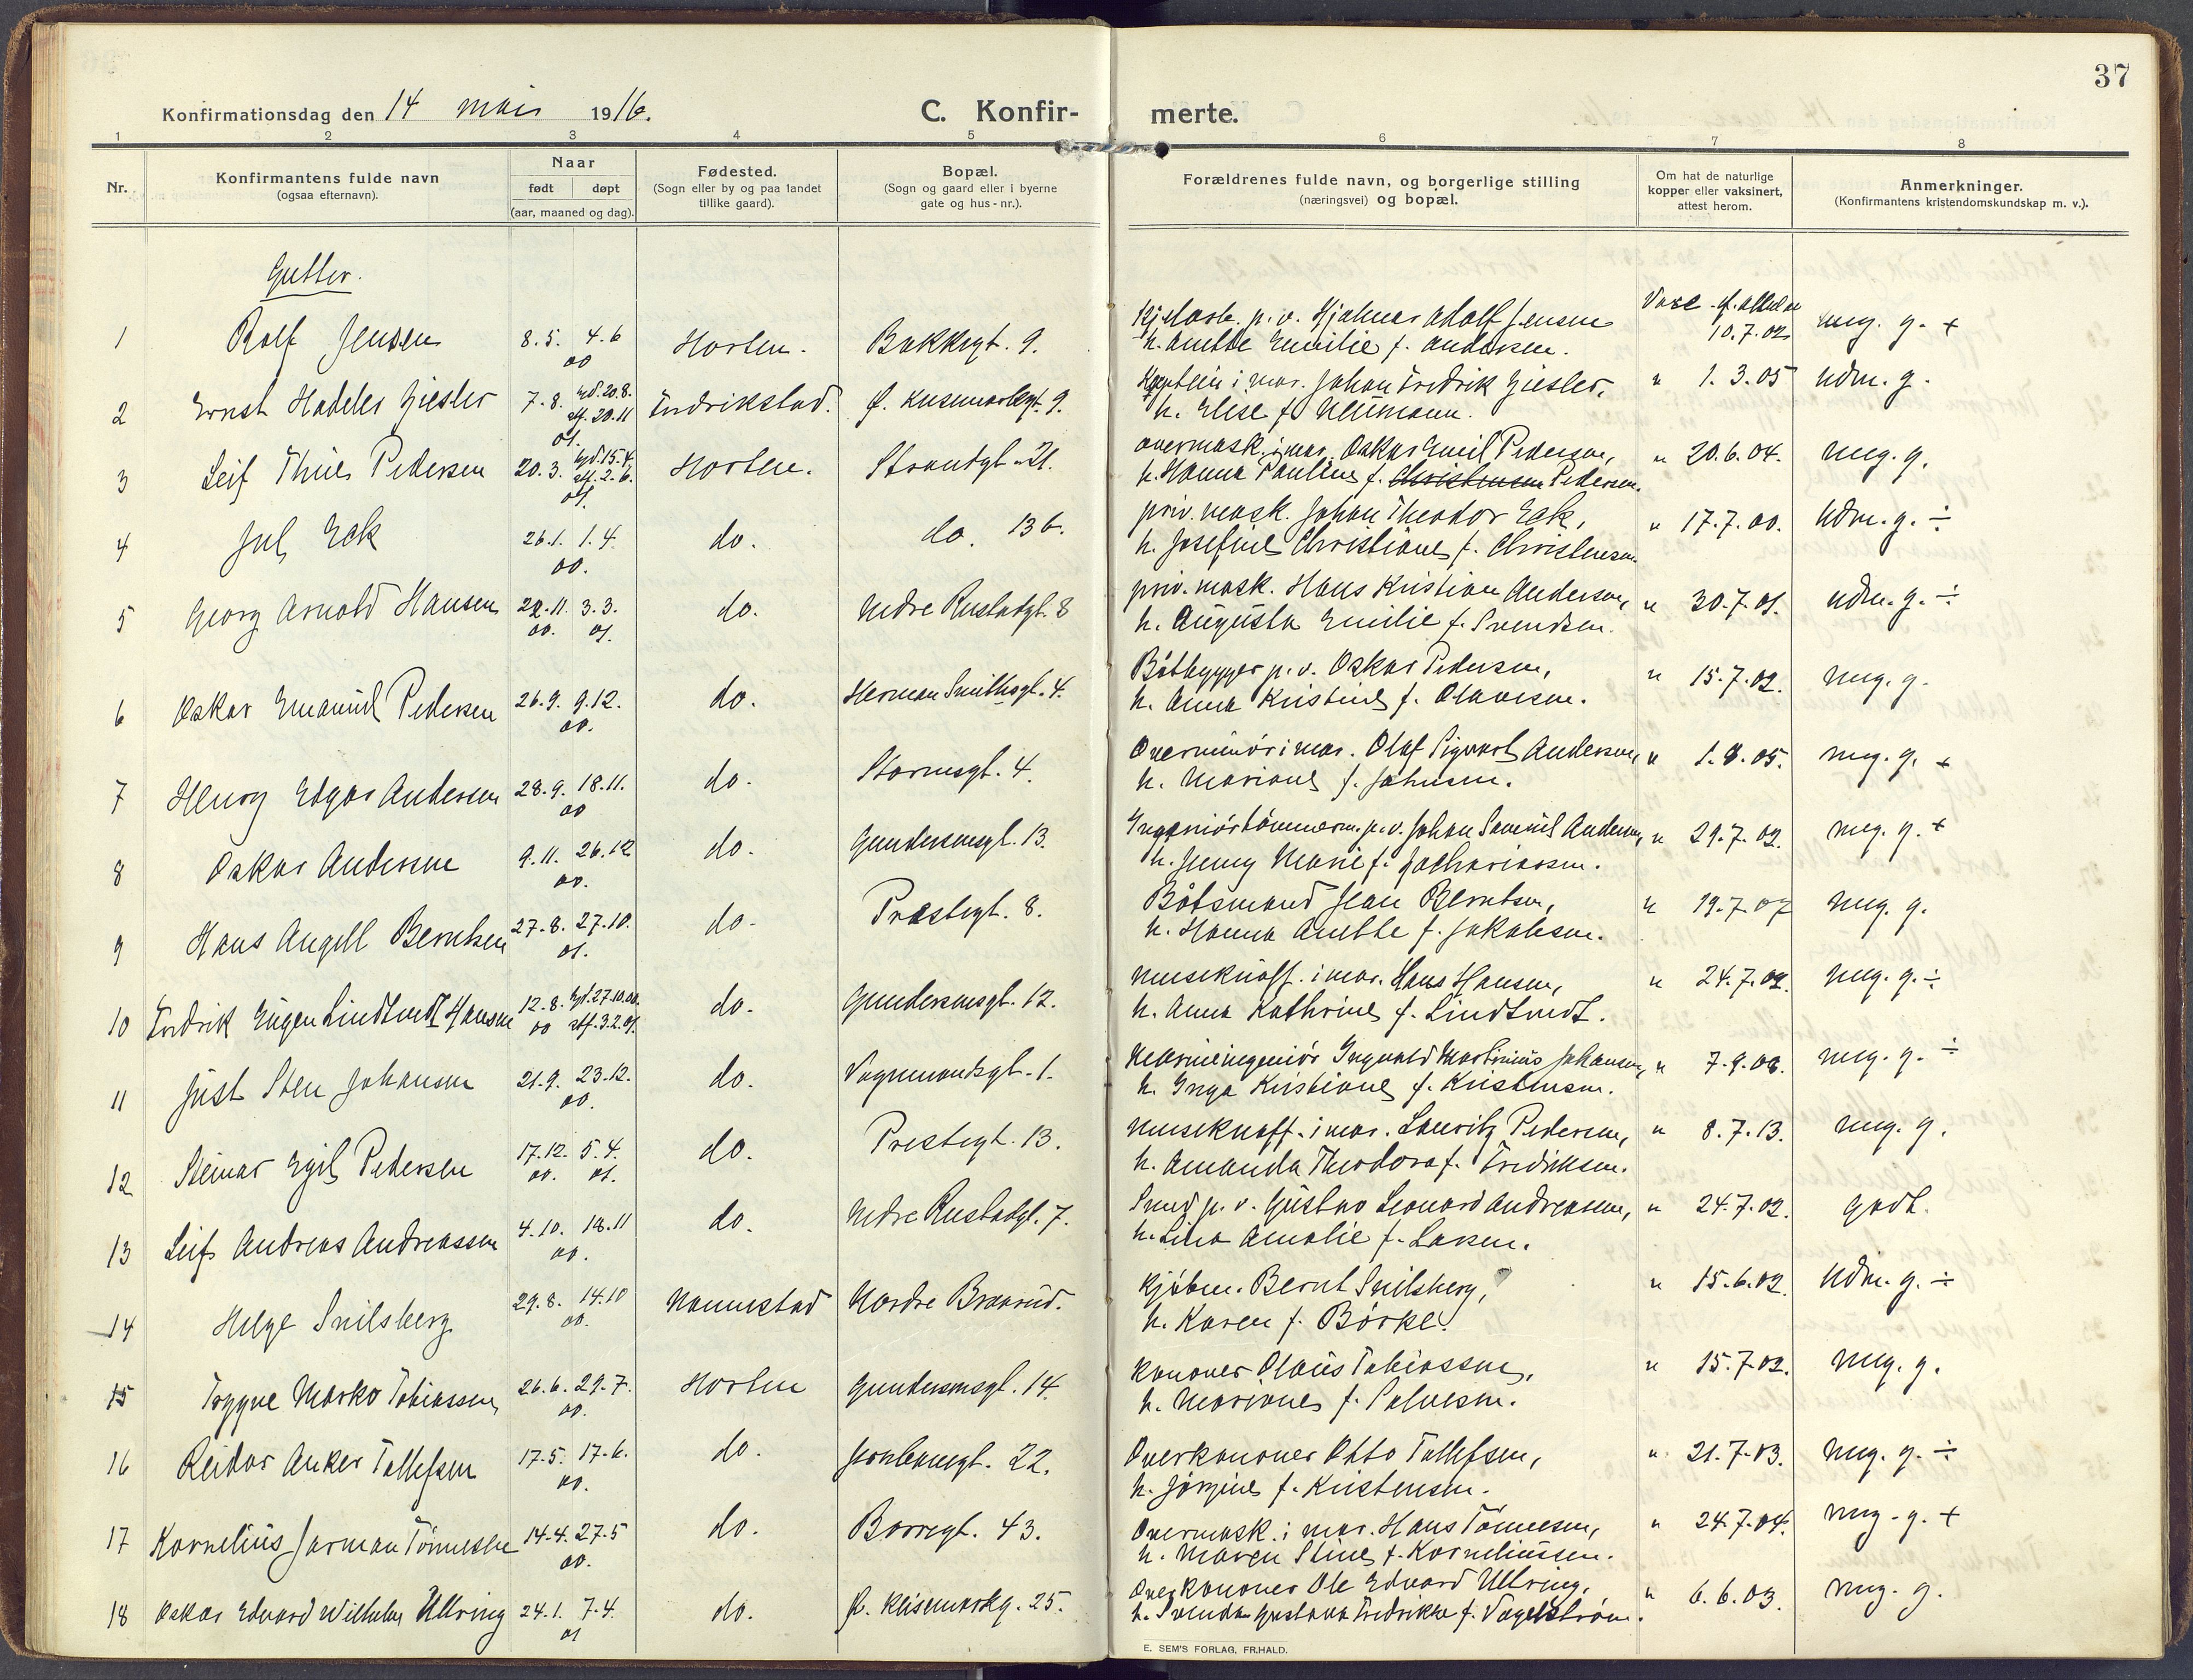 37
Konfirmationsdag den 14 mai 1916.
C. Konfir-
merte.
1 2 3 4 5 6 7 8
Nr.
Konfirmantens fulde navn
(ogsaa efternavn).
Naar
født døpt
(aar, maaned og dag).
Fødested.
(Sogn eller by og paa landet
tillike gaard).
Bopæl.
(Sogn og gaard eller i byerne
gate og hus-nr.).
Forældrenes fulde navn, og borgerlige stilling
(næringsvei) og bopæl.
Om hat de naturlige
kopper eller vaksinert,
attest herom.
Anmerkninger.
(Konfirmantens kristendomskundskap m. v.).
Gutter.
1 Rolf Jensen 8.5. 4.6 00 Horten. Bakkegt. 9.
p. v. Hjalmar Adolf Jensen
h. Anette Emilie f. Andersen.
Vacc. 10.7.02 mg. g. +
2 Ernst Hadeler Giesler 7.8. 20.8. 20.11 01. Fredrikstad. 9.
Kaptein i mar. Johan Fredrik Giesler,
h. Elise f. Neumann.
" 1.3.05 udm. g.
3 Leif Thiis Pedersen 20.3. 15.4. 2.6. 01. Horten. Strandgt. 21.
overmask. i mar. Oskar Emil Pedersen,
h. Hanna Pauline f. Christensen Pedersen.
" 20.6.04. meg. g.
4 Jul Eck 26.1. 1.4. 00. do. do. 13 b.
priv. mask. Johan Theodor Eck,
h. Josefine Christiane f. Christensen.
" 17.7.00. Udm. g. ÷
5 Georg Arnold Hansen 22.11. 00. 3.3. 01. do. Nedre Rustadgt. 8
priv. mask. Hans Kristian Andersen,
h. Augusta Emilie f. Svendsen.
" 30.7.01. udm. g. ÷
6 Oskar Emanuel Pedersen 26.9. 9.12. 00. do. Herman Smithsgt. 4.
Båtbygger p. v. Oskar Pedersen,
h. Anna Kristine f. Olavesen.
" 15.7.02. meg. g.
7 Henry Edgar Andersen 28.9. 18.11. 00 do. Stormsgt. 4.
Overminør i mar. Olaf Sigvart Andersen,
h. Mariane f. Johnsen.
" 1.8.05. meg. g. +
8 Oskar Andersen 9.11. 26.12 00. do. Gundersensgt. 13.
Ingeniørtømmerm. p. v. Johan Samuel Andersen,
h. Jenny Marie f. Zachariassen.
" 29.7.02. meg. g. +
9 Hans Angell Berntsen 27.8. 27.10. 01. do. Prestegt. 8.
Båtsmand Jean Berntsen,
h. Hanna Anette f. Jakobsen.
" 19.7.07 meg. g.
10 Fredrik Eugen Lindtvedt Hansen 12.8. 00 27.10.00. 3.2.01. do. Gundersensgt. 12.
i mar. Hans Hansen,
h. Anna Kathrine f. Lindtvedt.
" 24.7.02. meg. g. ÷
11 Just Sten Johansen 21.9. 23.12. 00. do. Vognmandsgt. 1.
Marineingeniør Ingvald Martinius Johansen,
h. Inga Kristiane f. Kristensen.
" 7.9.08. meg. g. ÷
12 Steinar Egil Pedersen 17.12. 00. 5.4. 01. do. Prestegt. 13.
i mar. Lauritz Pedersen,
h. Amanda Theodora f. Fredriksen.
" 8.7.13. meg. g.
13 Leif Andreas Andreassen 4.10. 18.11 00. do. Nedre Rustadgt. 7.
Smed p. v. Gustav Leonard Andreassen,
h. Lina Amalie f. Larsen.
" 24.7.02. godt.
14 Helge Snilsberg 29.8. 14.10 00. Nannestad Nordre Braarud.
Kjøbm. Bernt Snilsberg,
h. Karen f. Børke.
" 15.6.02. Udm. g. ÷
15 Trygve Marko Tobiassen 26.6. 29.7. 00. Horten Gundersensgt. 14.
Kanoner Olaus Tobiassen,
h. Mariane f. Salvesen.
" 15.7.02. meg. g.
16 Reidar Anker Tollefsen 17.5. 17.6. 00. do. Jernbanegt. 22.
Overkanoner Otto Tollefsen,
h. Jørgine f. Kristensen.
" 21.7.03. meg. g. ÷
17 Kornelius Jarman Tønnesen 14.4. 27.5 00. do. Borregt. 43.
Overmask. i mar. Hans Tønnesen,
h. Maren Stine f. Korneliussen.
" 24.7.04. meg. g. +
18 Oskar Edvard Wilhelm Ullring 24.1. 7.4. 01 do. 25.
Overkanoner Ole Edvard Ullring,
h. Svenda Gustava Fredrikke f. Vagelstrøm.
" 6.6.03. meg. g.
E. SEM'S FORLAG, FR.HALD.